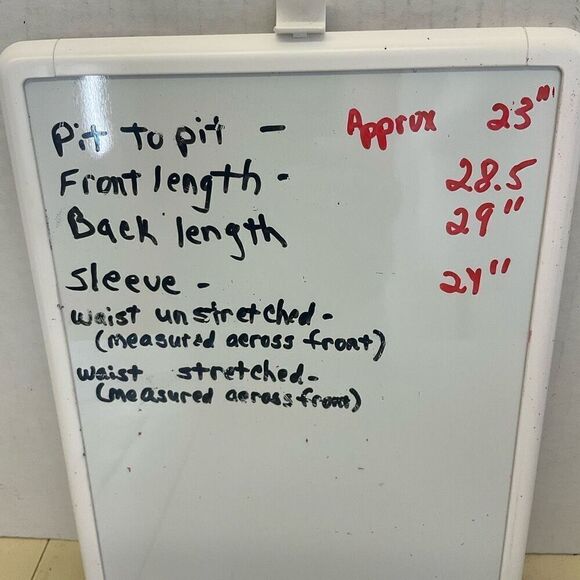 Pit to pit - Approx 23"
Front length - 28.5
Back length 29"
Sleeve - 24"
waist unstretched -
(measured across front)
waist stretched -
(measured across front)